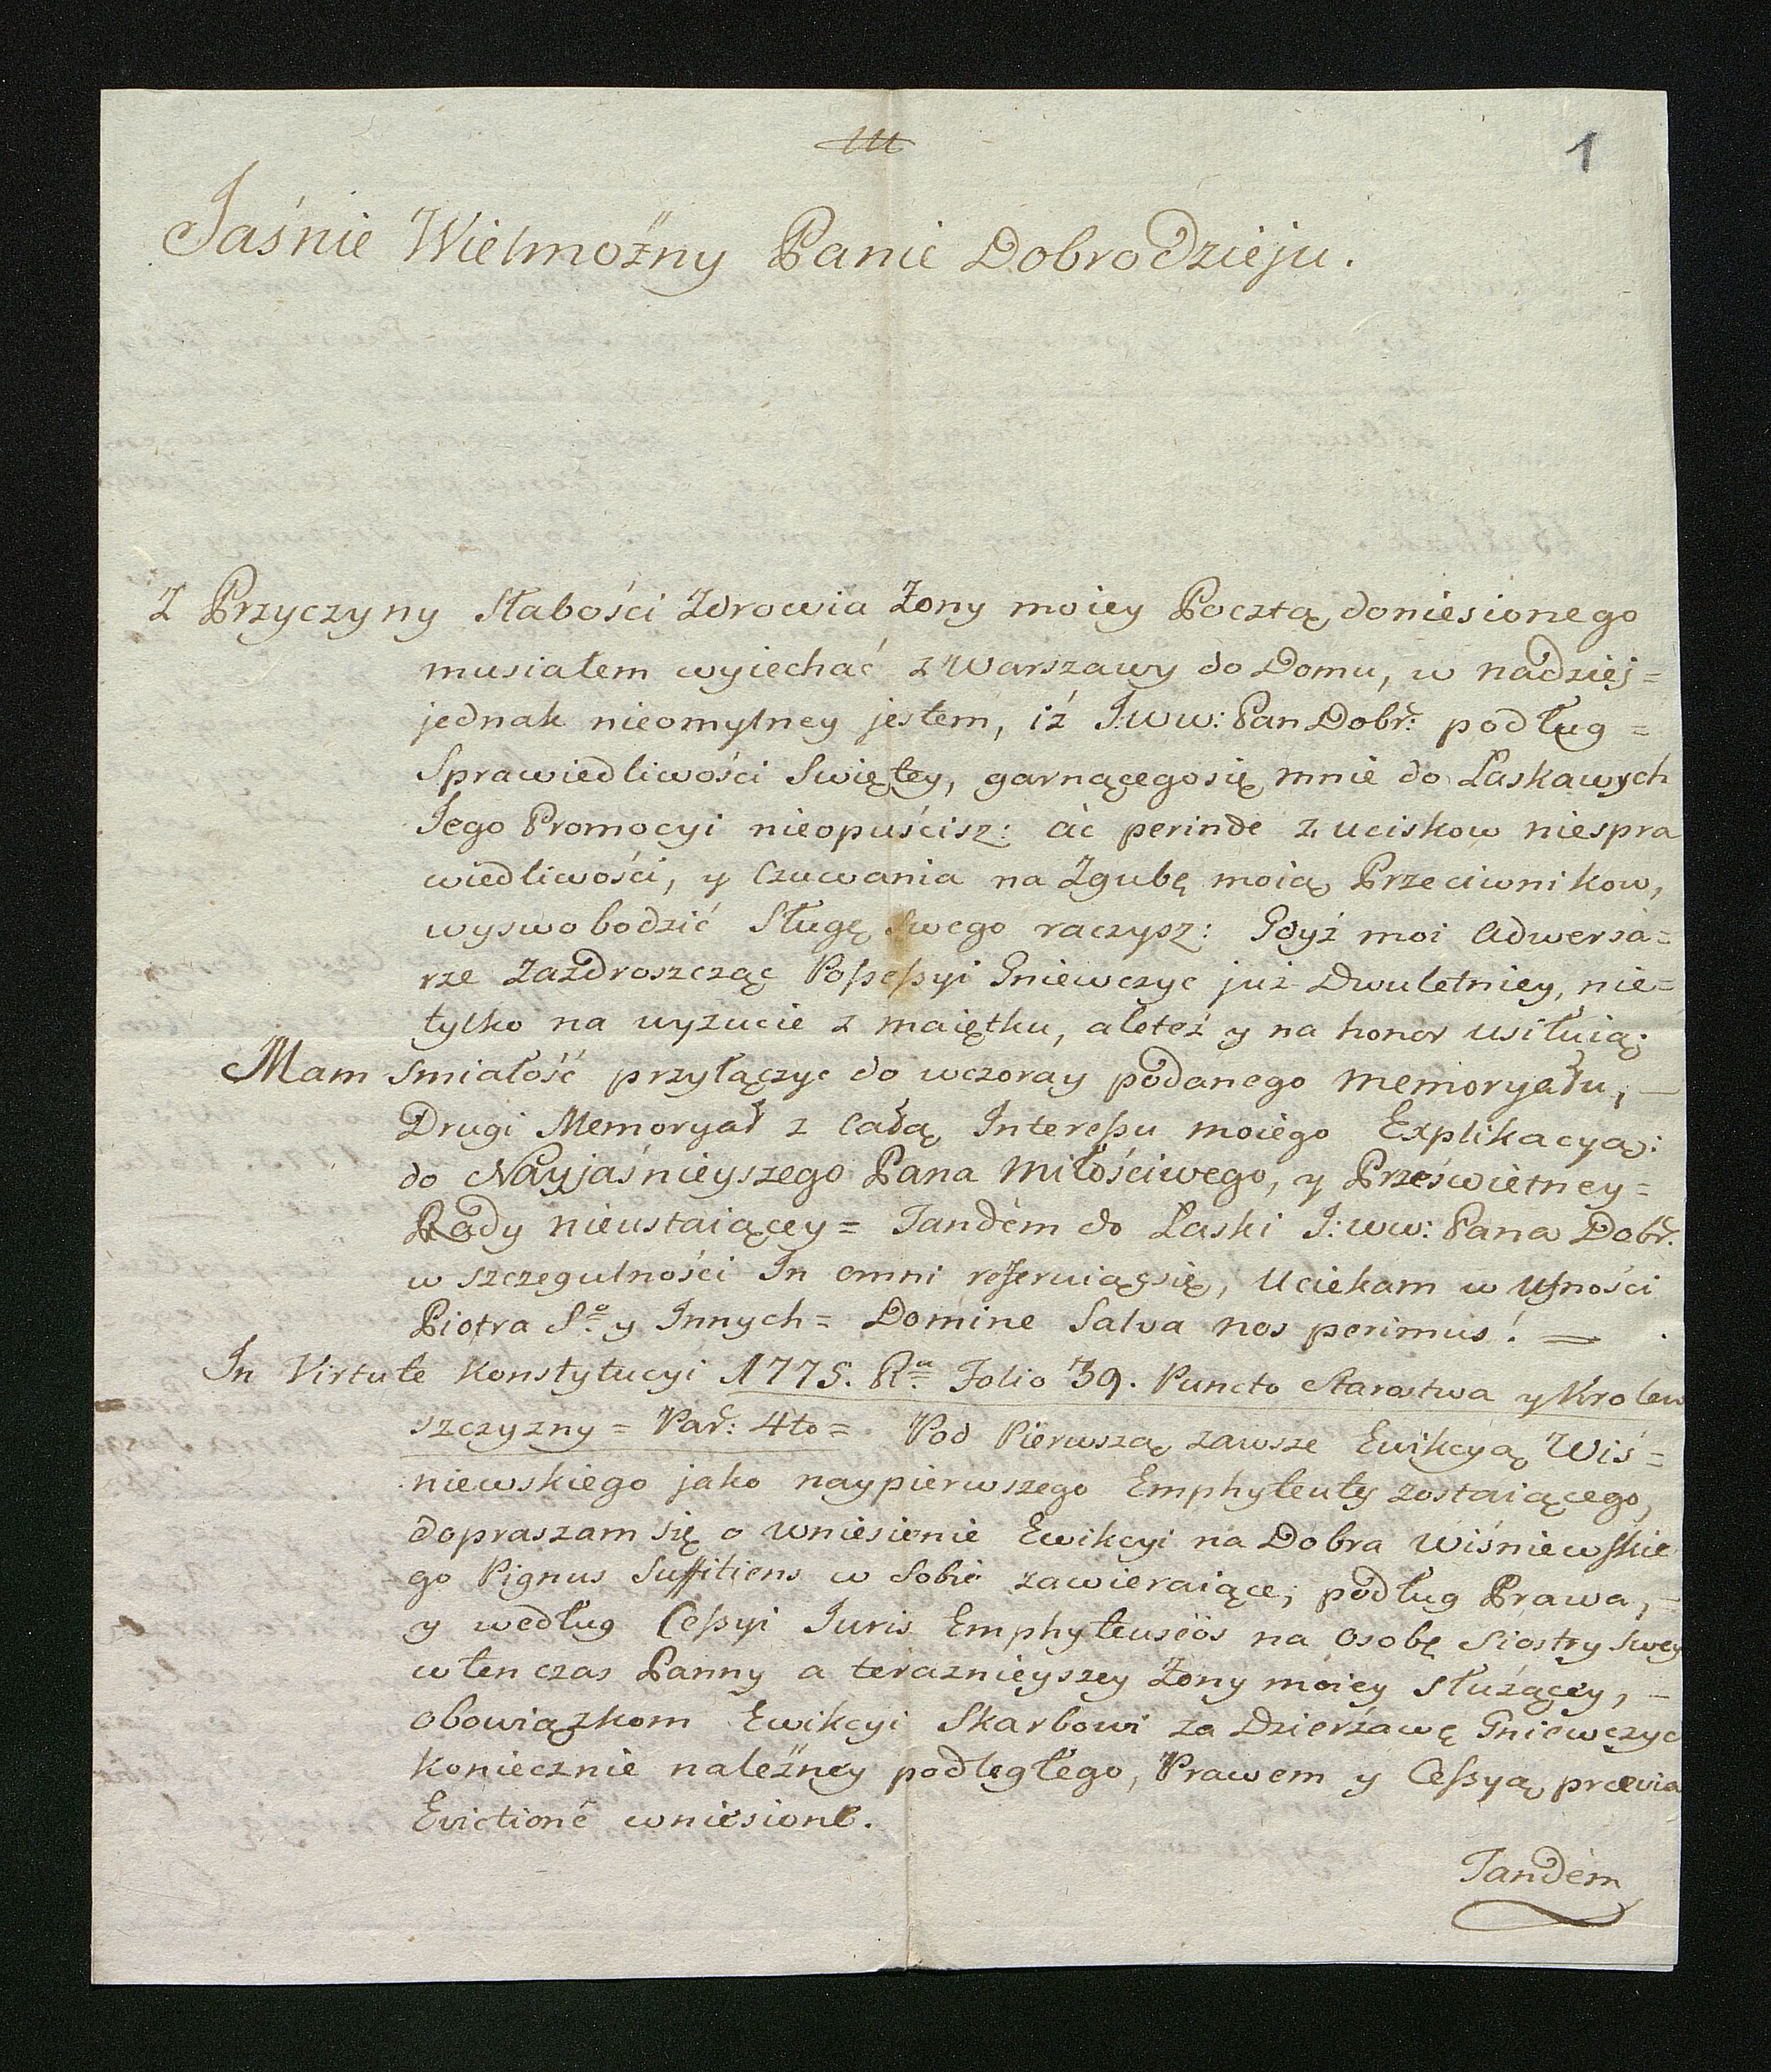 1
Jaśnie Wielmożny Panie Dobrodzieju.
Z Przyczyny Słabości Zdrowia Żony moiey Pocztą doniesionego
musiałem wyiechać z Warszawy do Domu, w nadziej=
jednak nieomylney jestem, iż J:ww: Pan Dobr: podług=
Sprawiedliwości Swiętey, garnącego się mnie do Łaskawych
Jego Promocyi nieopuścisz: ac perinde z uciskow niespra
wiedliwości, y Czuwania na Zgubę moią Przeciwnikow,
wyswobodzić Sługę Swego raczysz: Gdyż moi Adwersa=
rze Zazdroszcząc Poßeßyi Gniewczyc już Dwuletniey, nie=
tylko na wyzucie z maiętku, aleteż y na honor usiłuią:
Mam Smiałość przyłączyc do wczoray podanego Memoryału, —
Drugi Memoryał z Całą Intereßu moiego Explikacyą:
do Nayjaśnieyszego Pana Miłościwego, y Prześwietney=
Rady nieustaiącey= Tandem do Łaski J:ww: Pana Dobr:
w szczegulności In omni referuiąsię, Uciekam w Ufności
Piotra S.º y Innych= Domine Salva nos perimus! =
In Virtute Konstytucyi 1775. Rª Folio 39. Puncto Starostwa y Krolew
szczyzny= Par: 4to= Pod Pierwszą zawsze Ewikcyą Wiś=
niewskiego jako naypierwszego Emphyteuty zostaiącego,
dopraszam się o wniesienie Ewikcyi na Dobra Wiśniewskie
go Pignus Suffitiens w Sobie zawieraiące; podług Prawa, —
y według Ceßyi Juris Emphyteuseos na Osobę Siostry Swey
w ten czas Panny a teraznieyszey Żony moiey Służącey, —
Obowiązkom Ewikcyi Skarbowi za Dzierżawę Gniewczyc
Koniecznie należney podległego, Prawem y Ceßyą prævia
Evictione wniesione.
Tandem